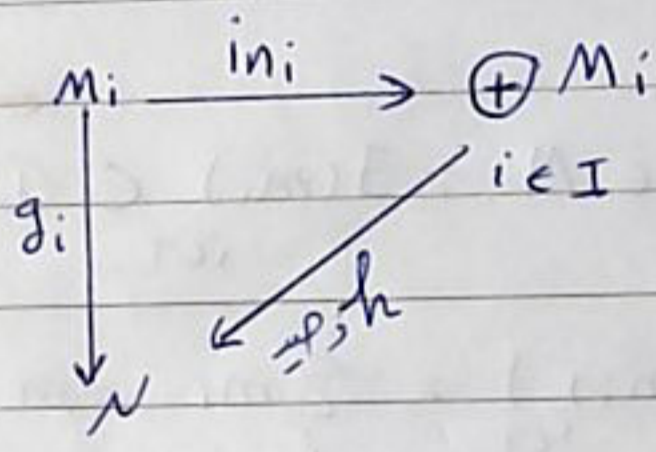 Mi inᵢ ⊕ Mi
i ∈ I
gi
h
N